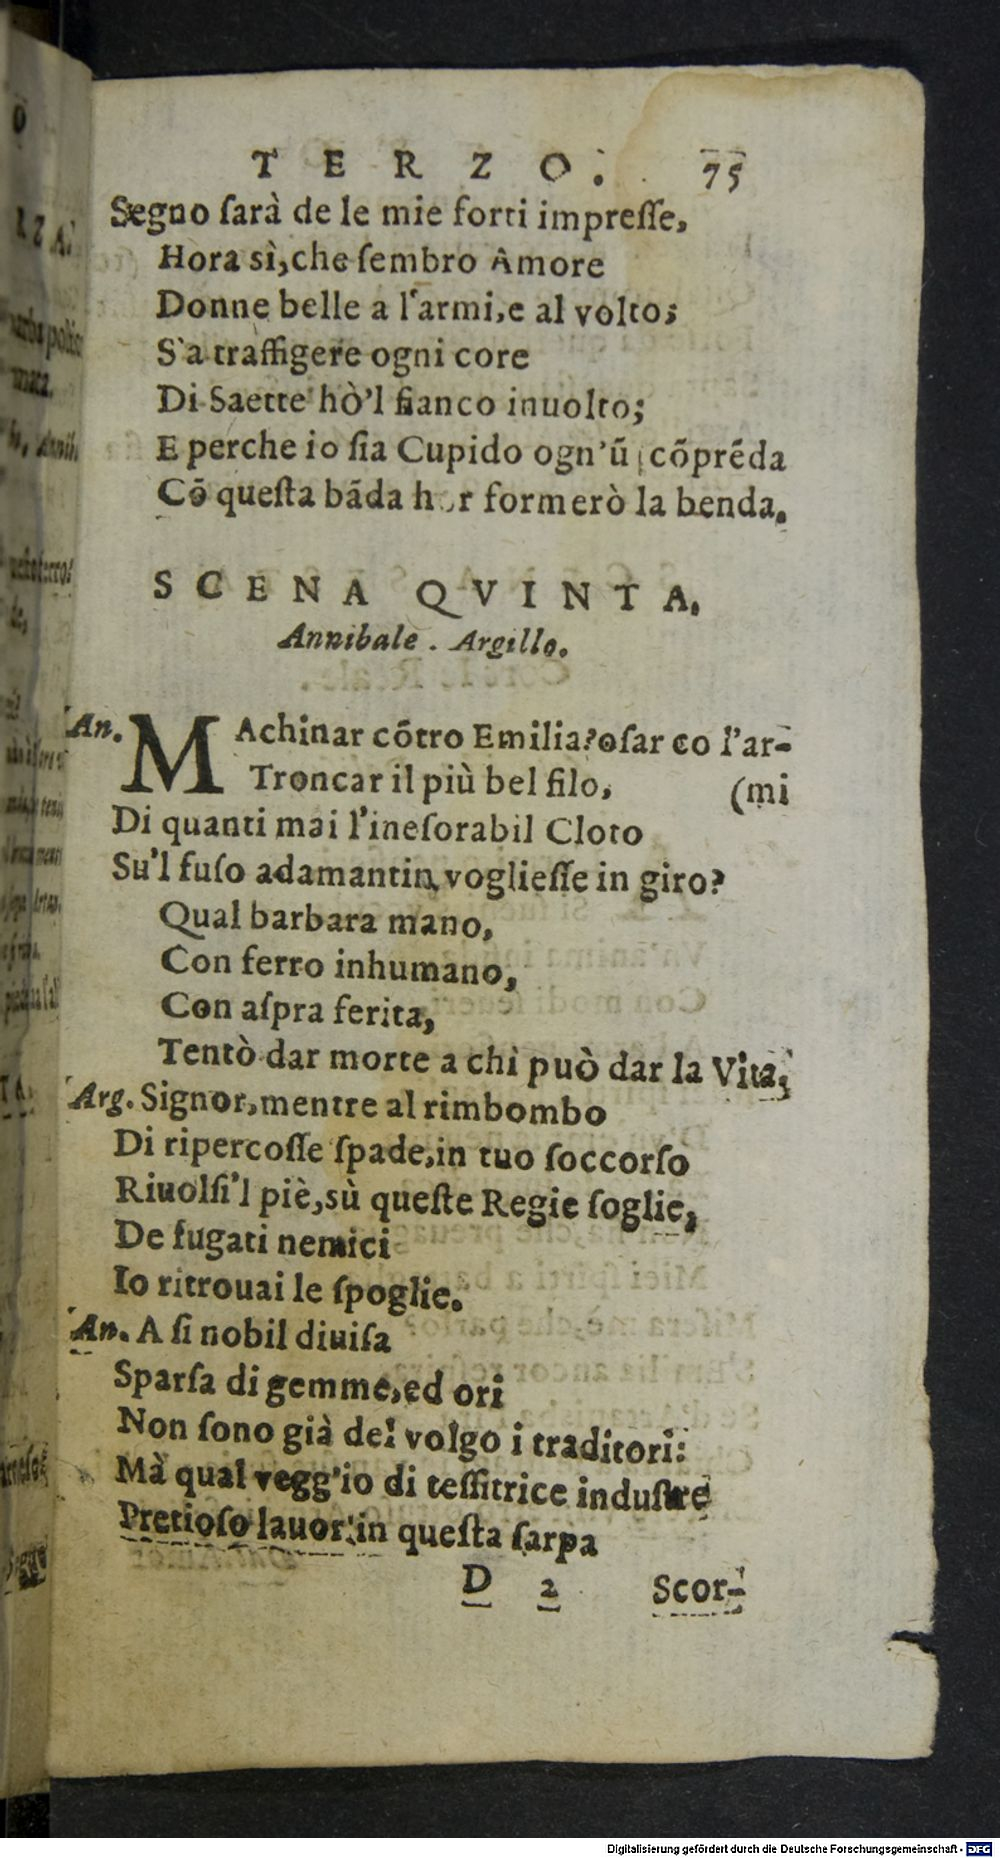 TERZO. 75
Segno ſarà de le mie forti impreſſe,
Hora sì, che ſembro Amore
Donne belle a l'armi, e al volto;
S'a traffigere ogni core
Di Saette hò'l fianco inuolto;
E perche io ſia Cupido ogn'ũ cõprẽda
Cõ queſta bãda hor formerò la benda.
SCENA QVINTA.
Annibale. Argillo.
An. MAchinar cõtro Emilia? oſar co l'ar-
Troncar il più bel filo, (mi
Di quanti mai l'ineſorabil Cloto
Su'l fuſo adamantin voglieſſe in giro?
Qual barbara mano,
Con ferro inhumano,
Con aſpra ferita,
Tentò dar morte a chi può dar la Vita;
Arg. Signor, mentre al rimbombo
Di ripercoſſe ſpade, in tuo ſoccorſo
Riuolſi'l piè, sù queſte Regie ſoglie,
De fugati nemici
Io ritrouai le ſpoglie.
An. A ſi nobil diuiſa
Sparſa di gemme, ed ori
Non ſono già del volgo i traditori:
Mà qual vegg'io di teſſitrice induſtre
Pretioſo lauor: in queſta ſarpa
D 2 Scor-
Digitalisierung gefördert durch die Deutsche Forschungsgemeinschaft - DFG